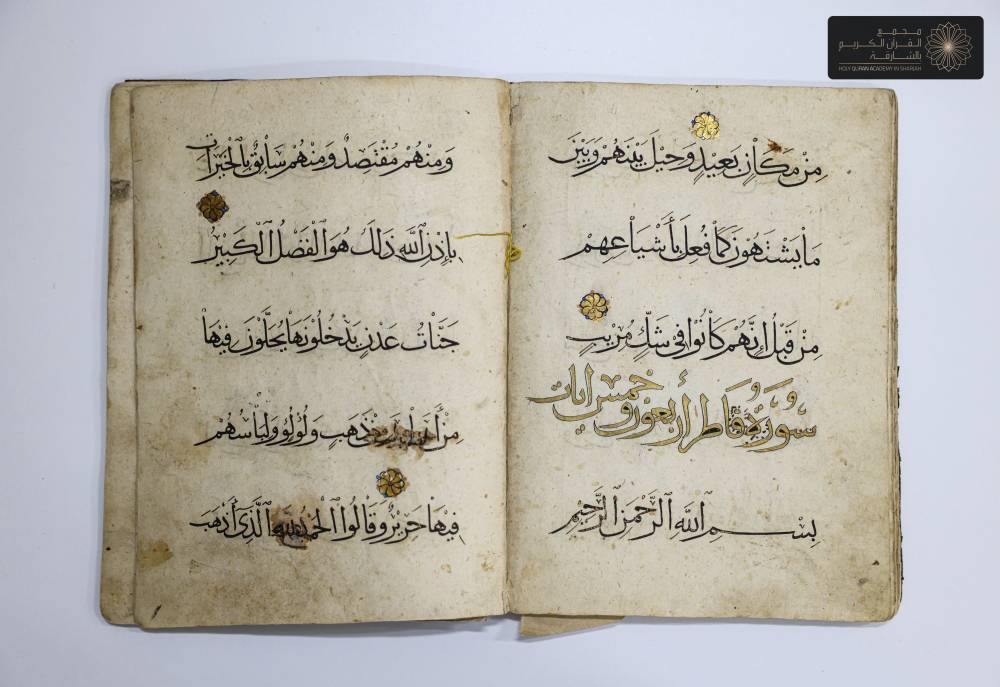 مجمع
القرآن الكريم
بالشارقة
HOLY QURAN ACADEMY IN SHARJAH
مِنْ مَكَانٍ بَعِيدٍ وَحِيلَ بَيْنَهُمْ وَبَيْنَ
مَا يَشْتَهُونَ كَمَا فُعِلَ بِأَشْيَاعِهِمْ
مِنْ قَبْلُ إِنَّهُمْ كَانُوا فِي شَكٍّ مُرِيبٍ
سورة فاطر أربعون وخمس ايات
بِسْمِ اللَّهِ الرَّحْمَنِ الرَّحِيمِ
وَمِنْهُمْ مُقْتَصِدٌ وَمِنْهُمْ سَابِقٌ بِالْخَيْرَاتِ
بِإِذْنِ اللَّهِ ذَلِكَ هُوَ الْفَضْلُ الْكَبِيرُ
جَنَّاتُ عَدْنٍ يَدْخُلُونَهَا يُحَلَّوْنَ فِيهَا
مِنْ أَسَاوِرَ مِنْ ذَهَبٍ وَلُؤْلُؤٍ وَلِبَاسُهُمْ
فِيهَا حَرِيرٌ وَقَالُوا الْحَمْدُ لِلَّهِ الَّذِي أَذْهَبَ